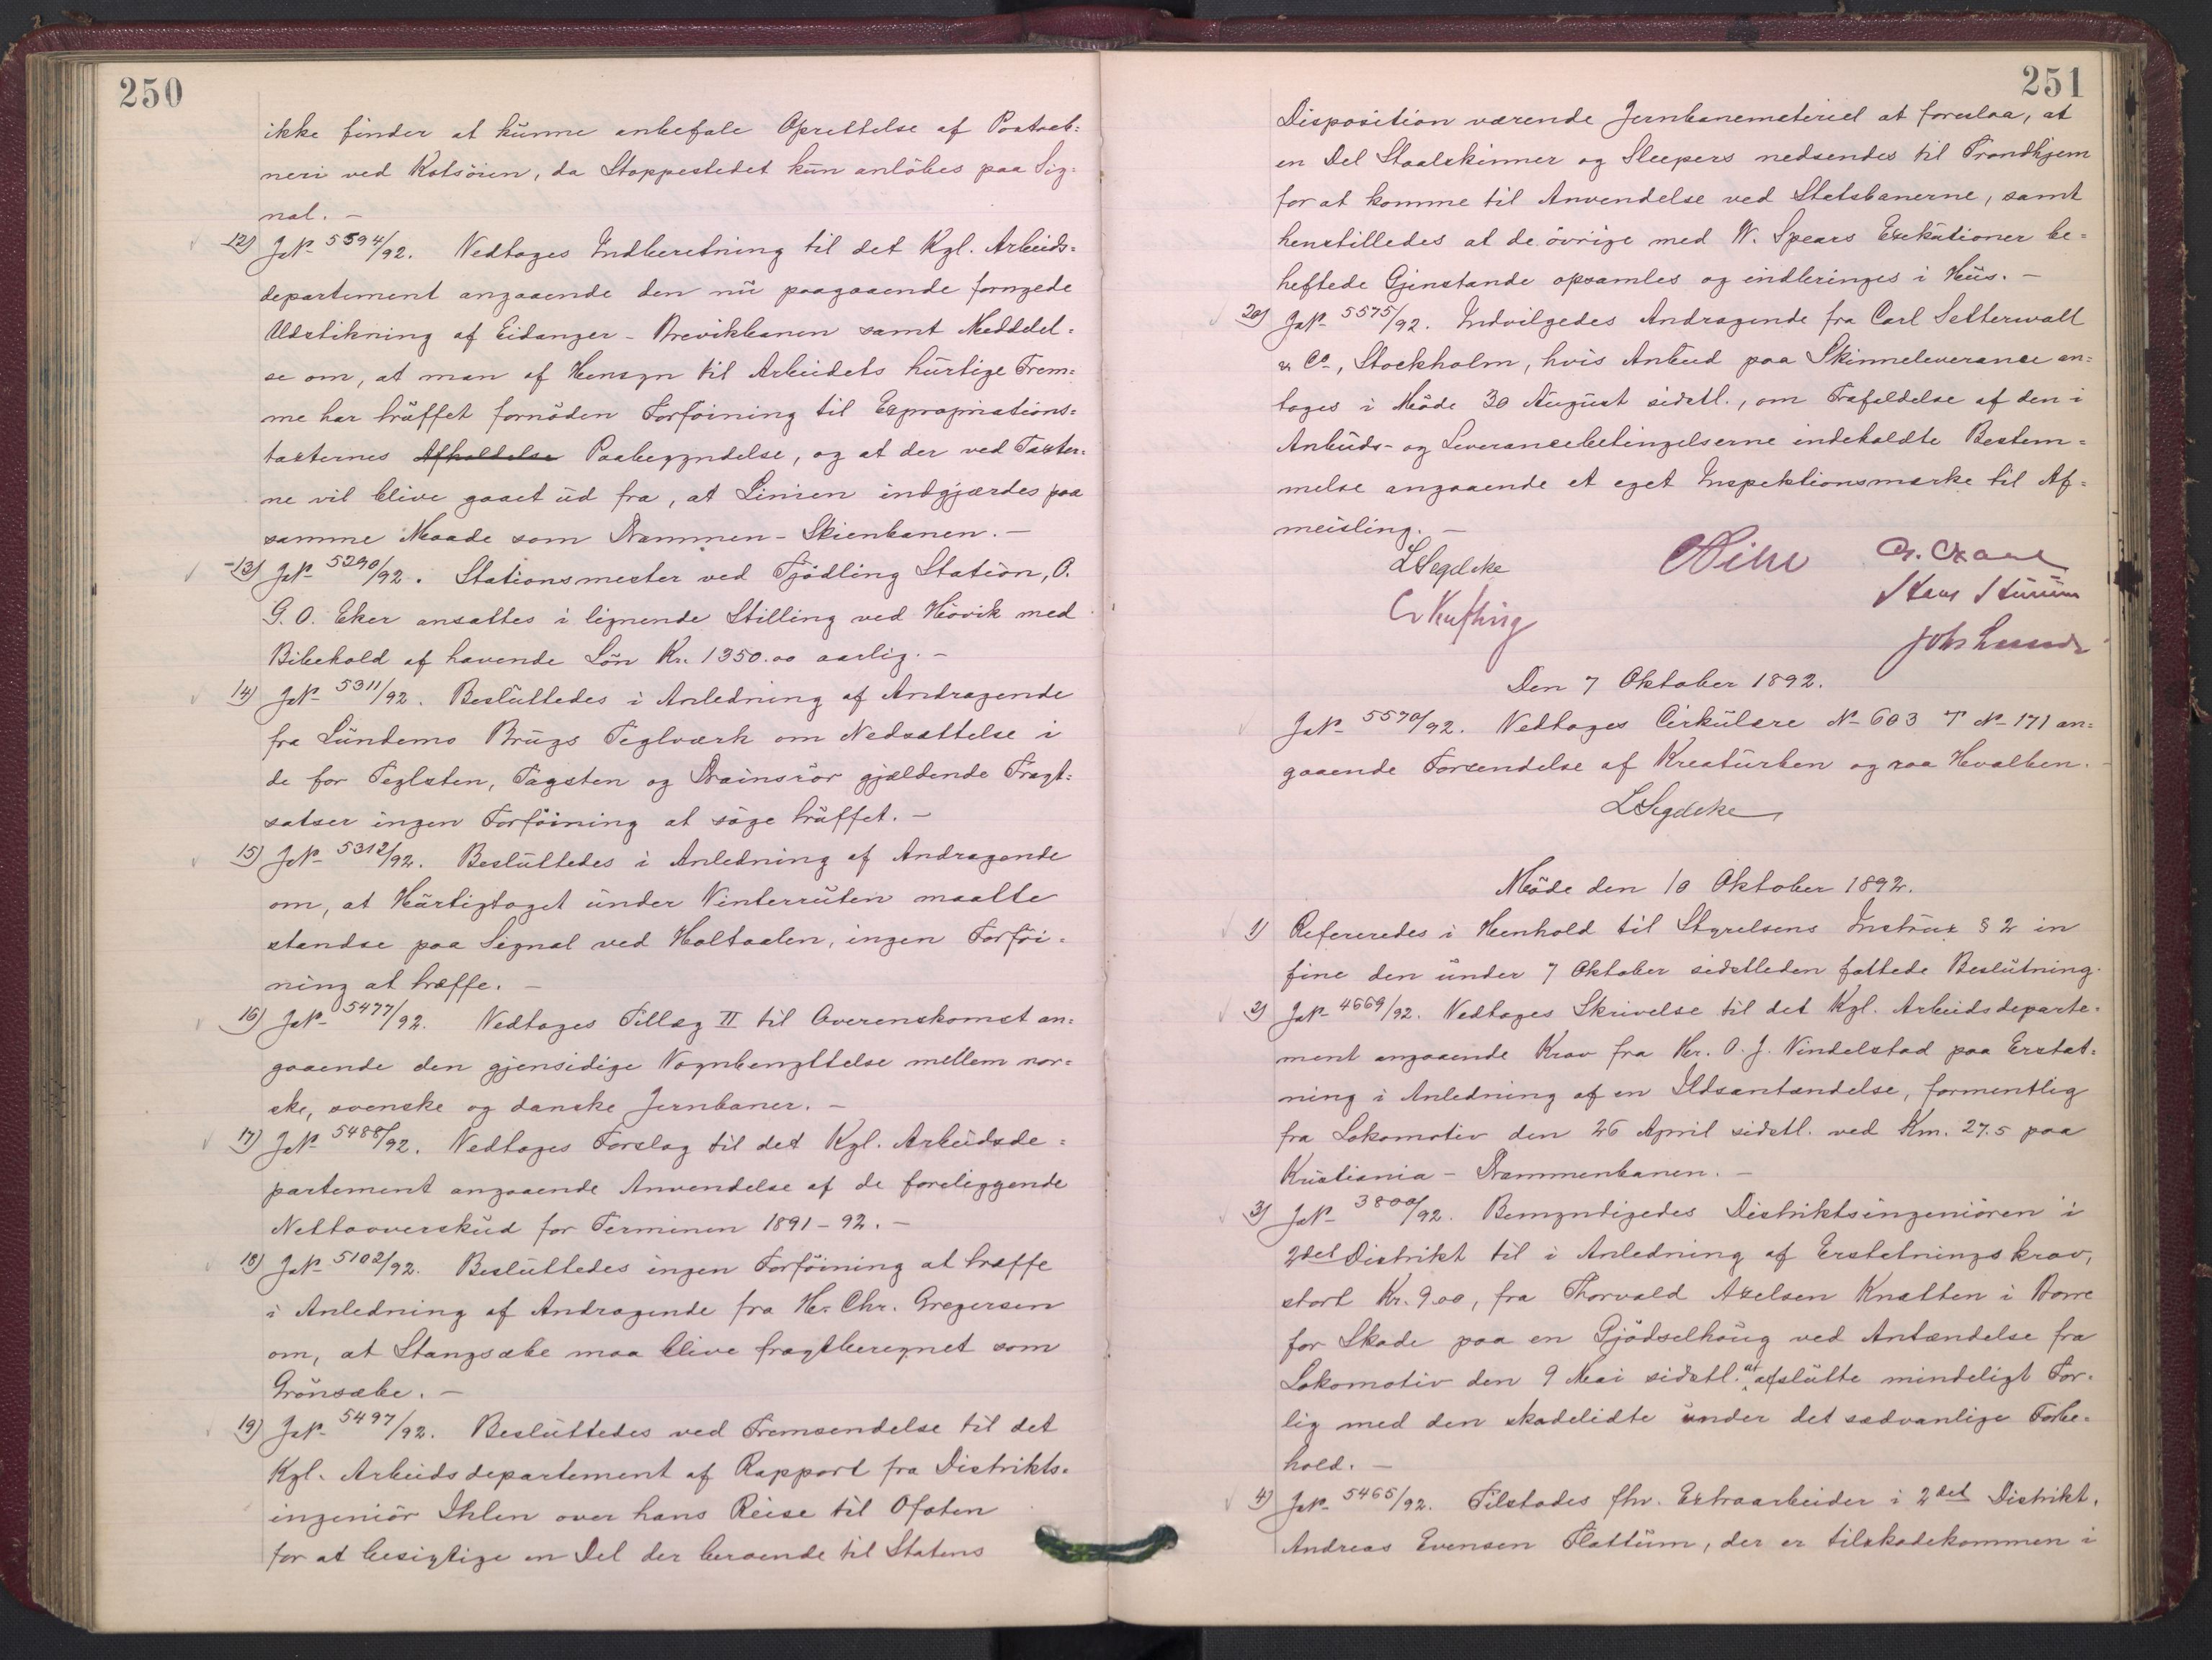 250
ikke finder at kunne anbefale Oprettelse af Postaab=
neri ved Rotsöien, da Stoppestedet kun anlöbes paa Sig=
nal. –
12) JNº 5594/92. Vedtoges Indberetning til det Kgl. Arbeids=
departement angaaende den nu paagaaende fornyede
Udstikning af Eidanger - Brevikbanen samt Meddelel=
se om, at man af Hensyn til Arbeidets hurtige Frem=
me har truffet fornöden Forföining til Expropriations=
taxternes Afholdelse Paabegyndelse, og at der ved Taxter=
ne vil blive gaaet ud fra, at Linien indgjærdes paa
samme Maade som Drammen - Skienbanen. –
13) JNº 5290/92. Stationsmester ved Tjödling Station, O.
G. O. Eker ansattes i lignende Stilling ved Hövik med
Bibehold af havende Lön Kr. 1350.00 aarlig. –
14) JNº 5311/92. Besluttedes i Anledning af Andragende
fra Lundemo Brugs Teglværk om Nedsættelse i
de for Teglsten, Tagsten og Drainsrör gjældende Fragt=
satser ingen Forföining at söge truffet. –
15) JNº 5312/92. Besluttedes i Anledning af Andragende
om, at Hurtigtoget under Vinterruten maatte
standse paa Signal ved Holtaalen, ingen Forföi=
ning at træffe. –
16) JNº 5477/92. Vedtoges Tillæg II til Overenskomst an=
gaaende den gjensidige Vognbenyttelse mellem nor=
ske, svenske og danske Jernbaner. –
17) JNº 5488/92. Vedtoges Forslag til det Kgl. Arbeidsde=
partement angaaende Anvendelse af de foreliggende
Nettooverskud for Terminen 1891-92. –
18) JNº 5102/92. Besluttedes ingen Forföining at træffe
i Anledning af Andragende fra Hr. Chr. Gregersen
om, at Stangsæbe maa blive fragtberegnet som
Grönsæbe. –
19) JNº 5497/92. Besluttedes ved Fremsendelse til det
Kgl. Arbeidsdepartement af Rapport fra Distrikts=
ingeniör Ihlen over hans Reise til Ofoten
for at besigtige en Del der beroende til Statens
251
Disposition værende Jernbanemateriel at foreslaa, at
en Del Staalskinner og Sleepers nedsendes til Trondhjem
for at komme til Anvendelse ved Statsbanerne, samt
henstilledes at de övrige med W. Spears Exekutioner be=
heftede Gjenstande opsamles og indbringes i Hus. –
20) JNº 5575/92. Indvilgedes Andragende fra Carl Setterwall
& Cº, Stockholm, hvis Anbud paa Skinneleverance an=
toges i Möde 30 August sidstl., om Frafaldelse af den i
Anbuds- og Leverancebetingelserne indeholdte Bestem=
melse angaaende et eget Inspektionsmærke til Af=
meisling. –
LSegelcke
Joh Lunde
Den 7 Oktober 1892.
JNº 5570/92. Vedtoges Cirkulære Nº 603 T Nº 171 an=
gaaende Forsendelse af Kreaturben og raa Hvalben. –
LSegelcke
Möde den 10 Oktober 1892.
1) Refereredes i Henhold til Styrelsens Instrux § 2 in
fine den under 7 Oktober sidstleden fattede Beslutning.
2) JNº 4669/92. Vedtoges Skrivelse til det Kgl. Arbeidsdeparte=
ment angaaende Krav fra Hr. O. J. Vindelstad paa Erstat=
ning i Anledning af en Ildsantændelse, formentlig
fra Lokomotiv den 26 April sidstl. ved Km. 27.5 paa
Kristiania - Drammenbanen. –
3) JNº 3800/92. Bemyndigedes Distriktsingeniören i
2det Distrikt til i Anledning af Erstatningskrav,
stort Kr. 9.00, fra Thorvald Axelsen Knatten i Borre
for Skade paa en Gjödselhaug ved Antændelse fra
Lokomotiv den 9 Mai sidstl. at afslutte mindeligt For=
lig med den skadelidte under det sædvanlige Forbe=
hold. –
4) JNº 5465/92. Tilstodes fhv. Extraarbeider i 2det Distrikt,
Andreas Evensen Flattum, der er tilskadekommen i